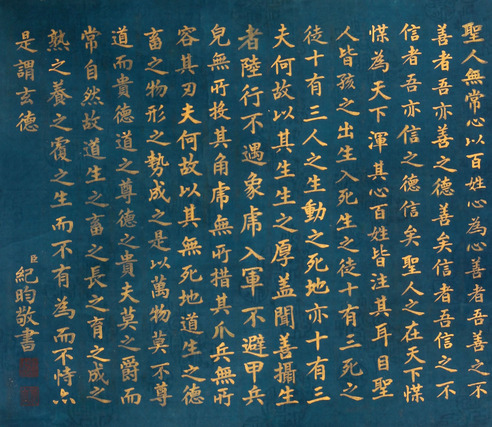 聖人無常心以百姓心為心善者吾善之不
善者吾亦善之德善矣信者吾信之不
信者吾亦信之德信矣聖人之在天下惵
惵為天下渾其心百姓皆注其耳目聖
人皆孩之出生入死生之徒十有三死之
徒十有三人之生動之死地亦十有三
夫何故以其生生之厚蓋聞善攝生
者陸行不遇象虎入軍不避甲兵
兕無所投其角虎無所措其爪兵無所
容其刃夫何故以其無死地道生之德
畜之物形之勢成之是以萬物莫不尊
道而貴德道之尊德之貴夫莫之爵而
常自然故道生之畜之長之育之成之
熟之養之覆之生而不有為而不恃
是謂玄德
臣紀昀敬書